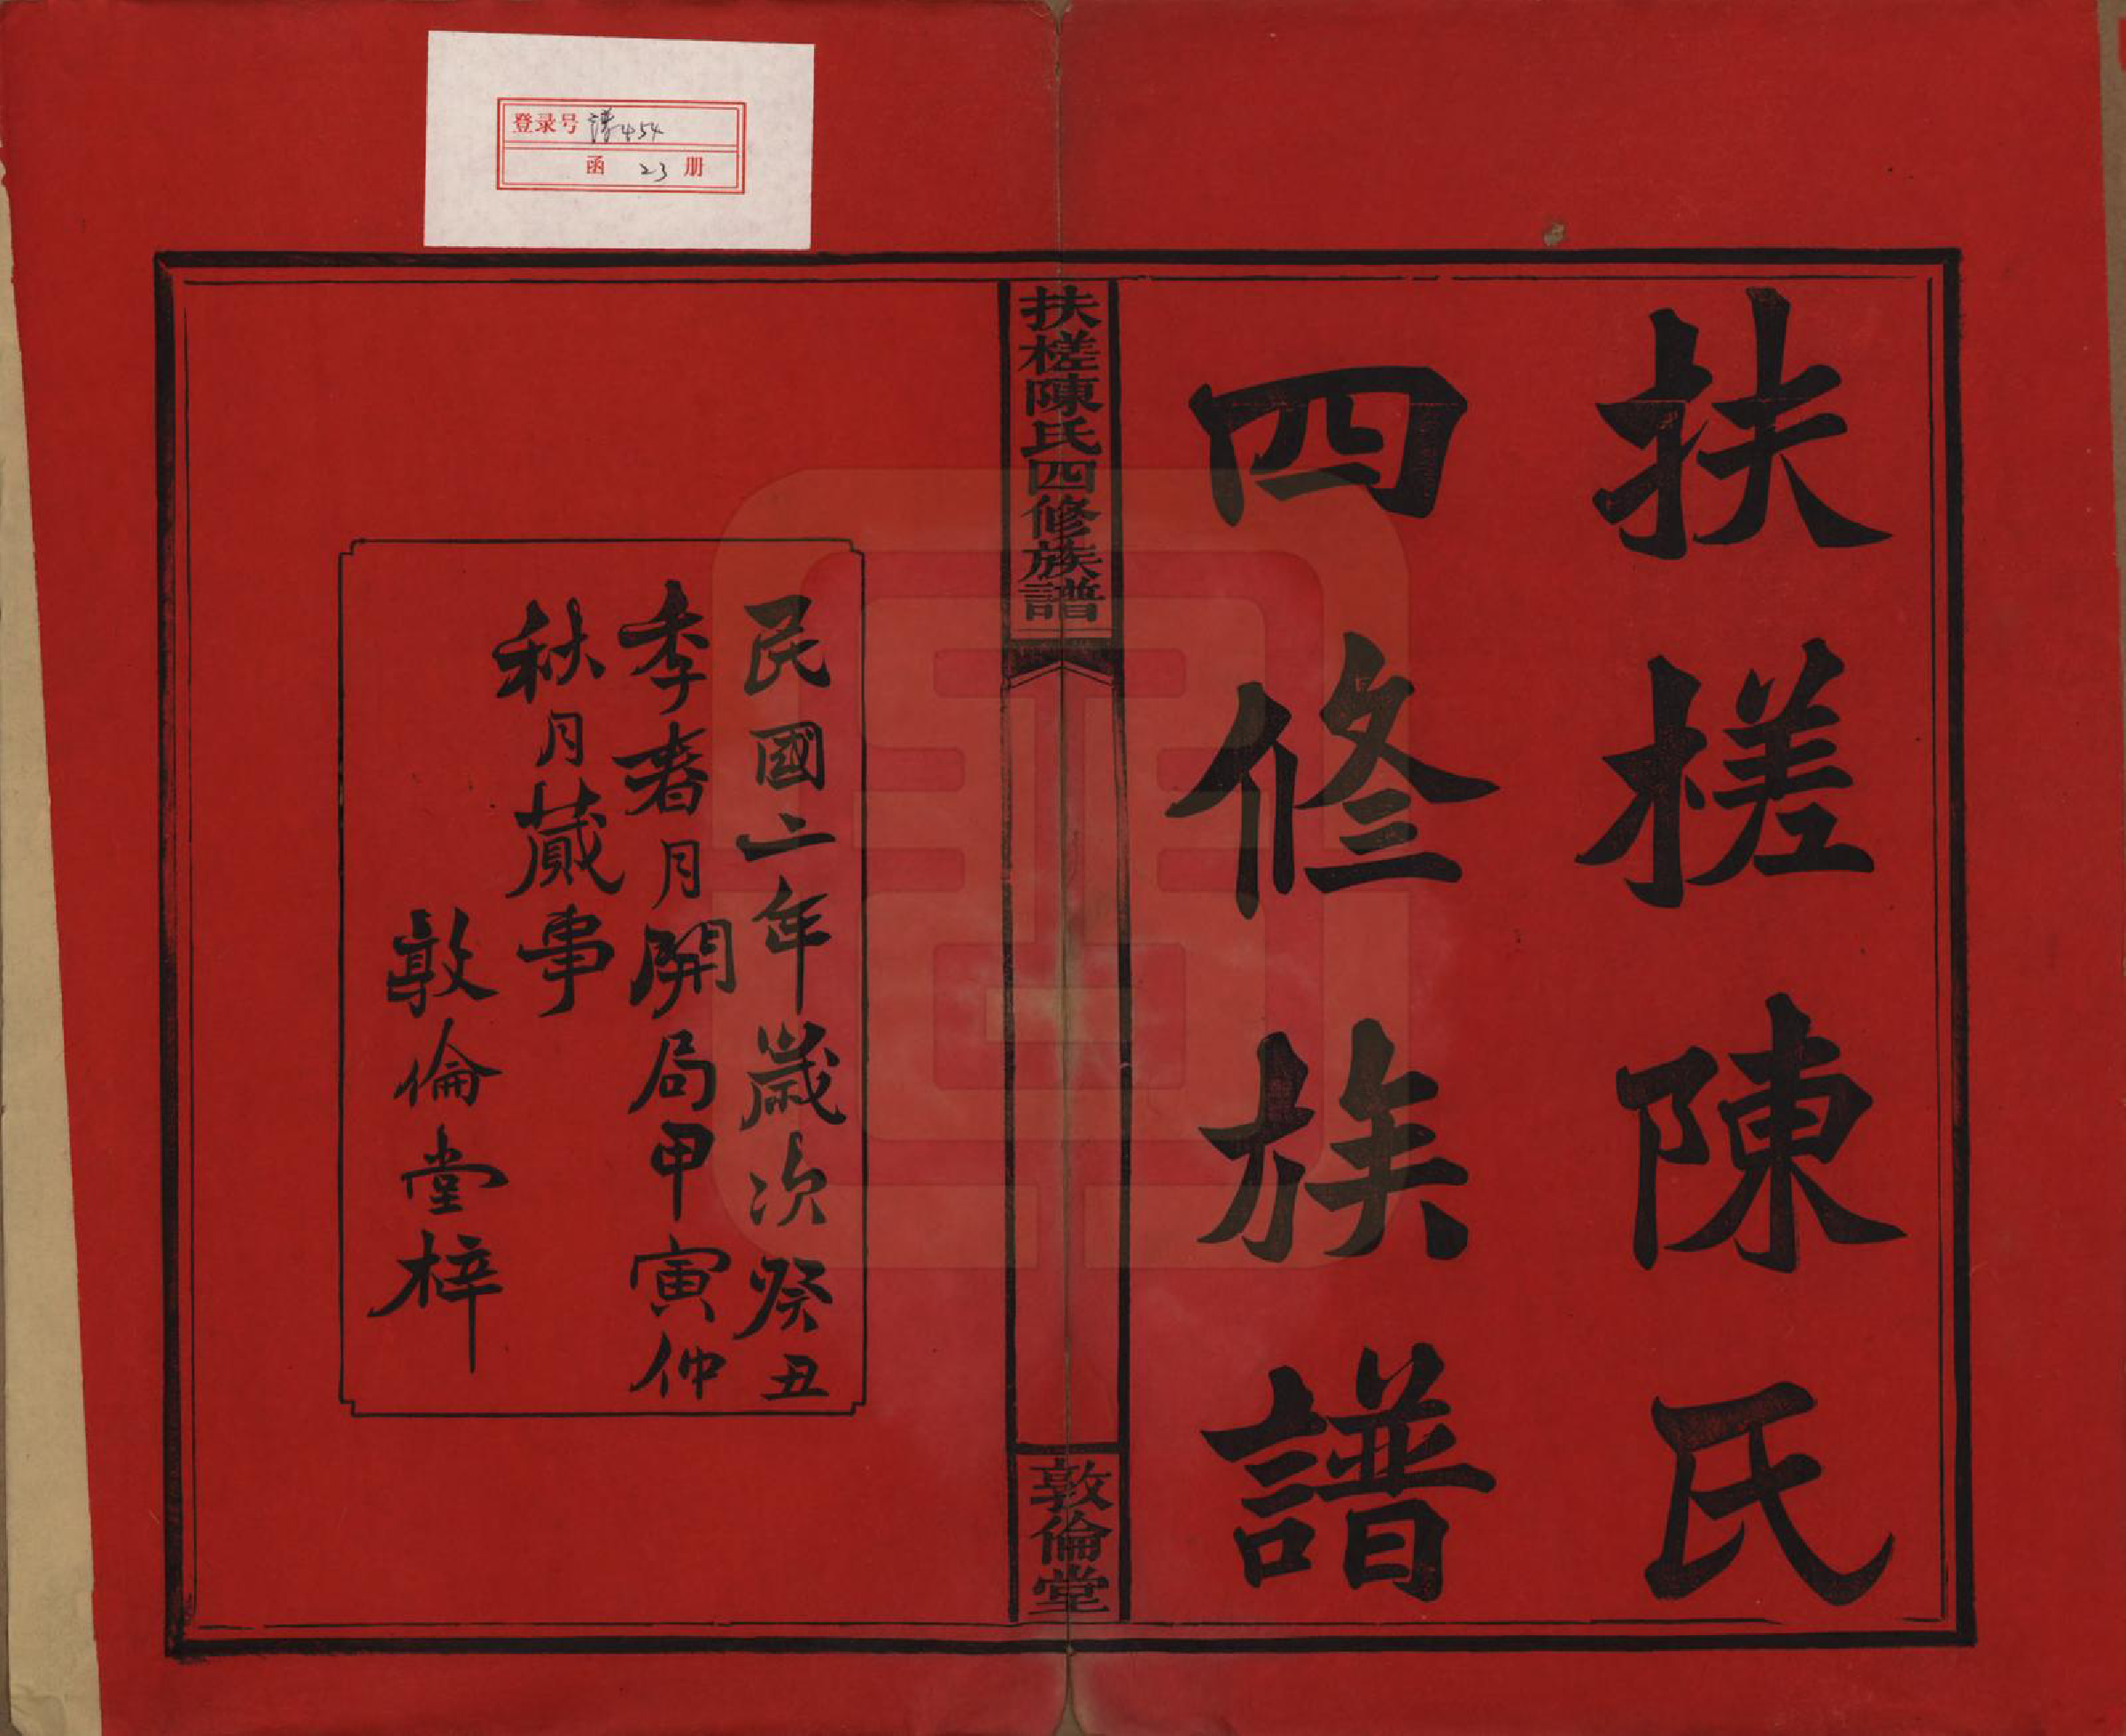 扶槎陳氏
四修族譜
扶槎陳氏四修族譜
敦倫堂
民國二年歲次癸丑
季春月開局甲寅仲
秋月蕆事
敦倫堂梓
登录号 譜454
函 23 册